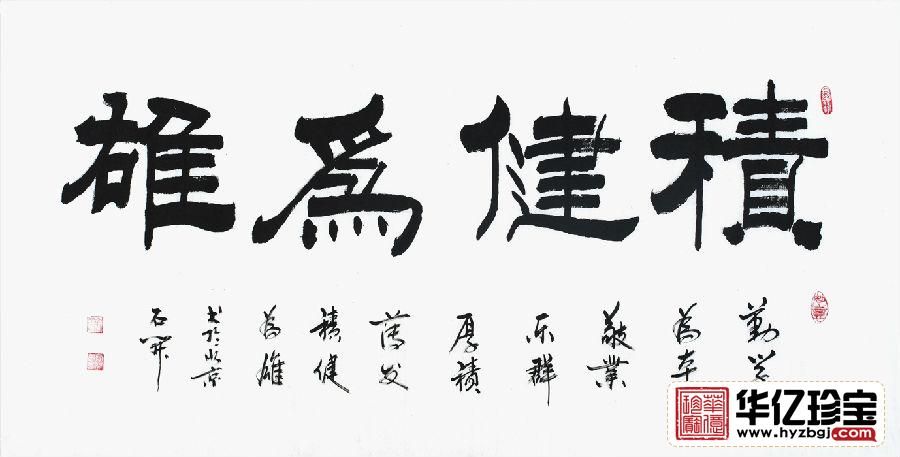 積健爲雄
勤学
為本
敬業
乐群
厚積
薄发
積健
為雄
书於北京
石開
華億珍寶
华亿珍宝
www.hyzbgj.com